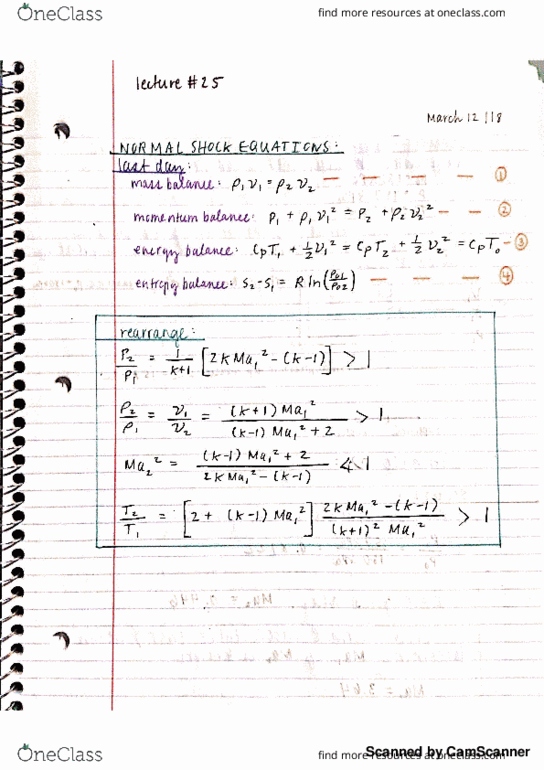 OneClass
find more resources at oneclass.com
lecture #25
March 12 /18
NORMAL SHOCK EQUATIONS:
last day:
mass balance: ρ₁ν₁ = ρ₂ν₂ — — — — ①
momentum balance: P₁ + ρ₁ν₁² = P₂ + ρ₂ν₂² — — ②
energy balance: CpT₁ + ½ν₁² = CpT₂ + ½ν₂² = CpT₀ — ③
entropy balance: S₂-S₁ = R ln(P₀₁/P₀₂) — — — ④
rearrange:
P₂/P₁ = 1/(k+1) [2kMa₁² - (k-1)] > 1
ρ₂/ρ₁ = ν₁/ν₂ = (k+1)Ma₁² / (k-1)Ma₁² + 2 > 1
Ma₂² = (k-1)Ma₁² + 2 / 2kMa₁² - (k-1) < 1
T₂/T₁ = [2 + (k-1)Ma₁²] 2kMa₁² - (k-1) / (k+1)² Ma₁² > 1
OneClass
find more resources at oneclass.com
Scanned by CamScanner